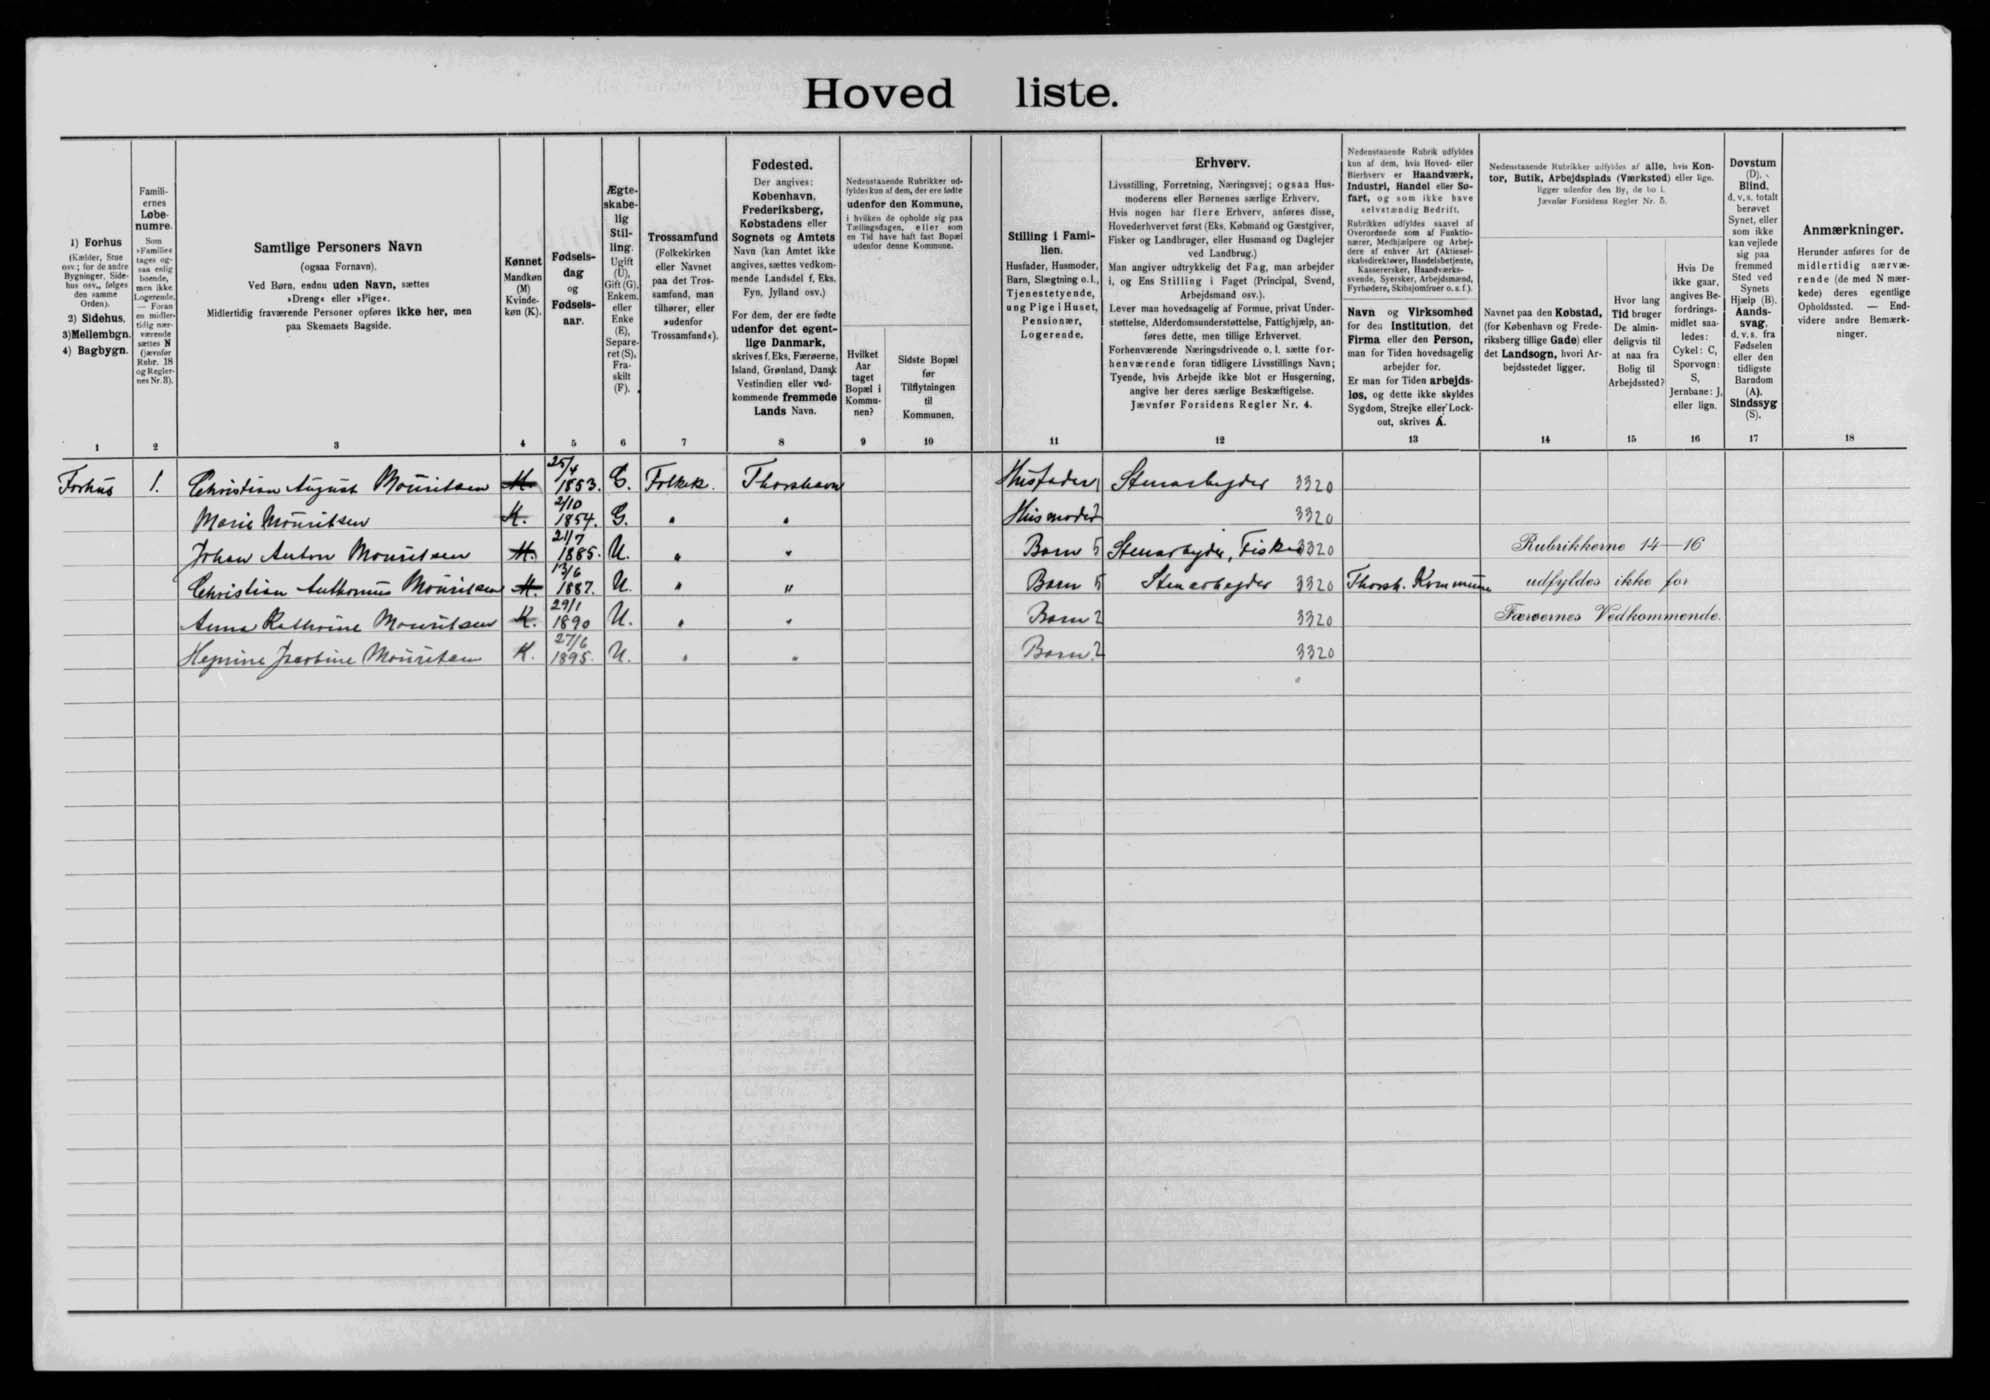 Hoved liste.
1) Forhus
(Kælder, Stue
osv.; for de andre
Bygninger, Side-
hus osv., følges
den samme
Orden).
2) Sidehus.
3) Mellembgn.
4) Bagbygn.
1
Famili-
ernes
Løbe-
numre.
Som
»Familie«
tages og-
saa enlig
boende,
men ikke
Logerende.
— Foran
en midler-
tidig nær-
værende
sættes N
(jævnfør
Rubr. 18
og Regler-
nes Nr. 3).
2
Samtlige Personers Navn
(ogsaa Fornavn).
Ved Børn, endnu uden Navn, sættes
»Dreng« eller »Pige«.
Midlertidig fraværende Personer opføres ikke her, men
paa Skemaets Bagside.
3
Kønnet
Mandkøn
(M)
Kvinde-
køn (K).
4
Fødsels-
dag
og
Fødsels-
aar.
5
Ægte-
skabe-
lig
Stil-
ling.
Ugift
(U),
Gift (G),
Enkem.
eller
Enke
(E),
Separe-
ret (S),
Fra-
skilt
(F).
6
Trossamfund
(Folkekirken
eller Navnet
paa det Tros-
samfund, man
tilhører, eller
»udenfor
Trossamfund«).
7
Fødested.
Der angives:
København,
Frederiksberg,
Købstadens eller
Sognets og Amtets
Navn (kan Amtet ikke
angives, sættes vedkom-
mende Landsdel f. Eks.
Fyn, Jylland osv.)
For dem, der ere fødte
udenfor det egent-
lige Danmark,
skrives f. Eks. Færøerne,
Island, Grønland, Dansk
Vestindien eller ved-
kommende fremmede
Lands Navn.
8
Nedenstaaende Rubrikker ud-
fyldes kun af dem, der ere fødte
udenfor den Kommune,
i hvilken de opholde sig paa
Tællingsdagen, eller som
en Tid have haft fast Bopæl
udenfor denne Kommune.
Hvilket
Aar
taget
Bopæl i
Kommu-
nen?
9
Sidste Bopæl
før
Tilflytningen
til
Kommunen.
10
Stilling i Fami-
lien.
Husfader, Husmoder,
Barn, Slægtning o.l.,
Tjenestetyende,
ung Pige i Huset,
Pensionær,
Logerende.
11
Erhverv.
Livsstilling, Forretning, Næringsvej; ogsaa Hus-
moderens eller Børnenes særlige Erhverv.
Hvis nogen har flere Erhverv, anføres disse,
Hovederhvervet først (Eks. Købmand og Gæstgiver,
Fisker og Landbruger, eller Husmand og Daglejer
ved Landbrug.)
Man angiver udtrykkelig det Fag, man arbejder
i, og Ens Stilling i Faget (Principal, Svend,
Arbejdsmand osv.).
Lever man hovedsagelig af Formue, privat Under-
støttelse, Alderdomsunderstøttelse, Fattighjælp, an-
føres dette, men tillige Erhvervet.
Forhenværende Næringsdrivende o. l. sætte for-
henværende foran tidligere Livsstillings Navn;
Tyende, hvis Arbejde ikke blot er Husgerning,
angive her deres særlige Beskæftigelse.
Jævnfør Forsidens Regler Nr. 4.
12
Nedenstaaende Rubrik udfyldes
kun af dem, hvis Hoved- eller
Bierhverv er Haandværk,
Industri, Handel eller Sø-
fart, og som ikke have
selvstændig Bedrift.
Rubrikken udfyldes saavel af
Overordnede som af Funktio-
nærer, Medhjælpere og Arbej-
dere af enhver Art (Aktiesel-
skabsdirektører, Handelsbetjente,
Kassererskеr, Haandværks-
svende, Syersker, Arbejdsmænd,
Fyrbødere, Skibsjomfruer o. s. f.).
Navn og Virksomhed
for den Institution, det
Firma eller den Person,
man for Tiden hovedsagelig
arbejder for.
Er man for Tiden arbejds-
løs, og dette ikke skyldes
Sygdom, Strejke eller Lock-
out, skrives A.
13
Nedenstaaende Rubrikker udfyldes af alle, hvis Kon-
tor, Butik, Arbejdsplads (Værksted) eller lign.
ligger udenfor den By, de bo i.
Jævnfør Forsidens Regler Nr. 5.
Navnet paa den Købstad,
(for København og Frede-
riksberg tillige Gade) eller
det Landsogn, hvori Ar-
bejdsstedet ligger.
14
Hvor lang
Tid bruger
De almin-
deligvis til
at naa fra
Bolig til
Arbejdssted?
15
Hvis De
ikke gaar,
angives Be-
fordrings-
midlet saa-
ledes:
Cykel: C,
Sporvogn:
S,
Jernbane: J,
eller lign.
16
Døvstum
(D).
Blind,
d. v. s. totalt
berøvet
Synet, eller
som ikke
kan vejlede
sig paa
fremmed
Sted ved
Synets
Hjælp (B).
Aands-
svag,
d. v. s. fra
Fødselen
eller den
tidligste
Barndom
(A).
Sindssyg
(S).
17
Anmærkninger.
Herunder anføres for de
midlertidig nærvæ-
rende (de med N mær-
kede) deres egentlige
Opholdssted. — End-
videre andre Bemærk-
ninger.
18
Forhus 1. Christian August Mouritsen M. 25/4 1853. G. Folkek. Thorshavn Husfader 1 Stenarbejder 3320
Marie Mouritsen K. 2/10 1854. G. " " Husmoder 2 3320
Johan Anton Mouritsen M. 21/7 1885. U. " " Barn 5 Stenarbejder, Fisker 3320 Rubrikkerne 14—16
Christian Anthonius Mouritsen M. 13/6 1887. U. " " Barn 5 Stenarbejder 3320 Thorsh. Kommune udfyldes ikke for
Anna Kathrine Mouritsen K. 29/1 1890 U. " " Barn 2 3320 Færøernes Vedkommende.
Jacobine Mouritsen K. 27/6 1895. U. " " Barn 2 3320